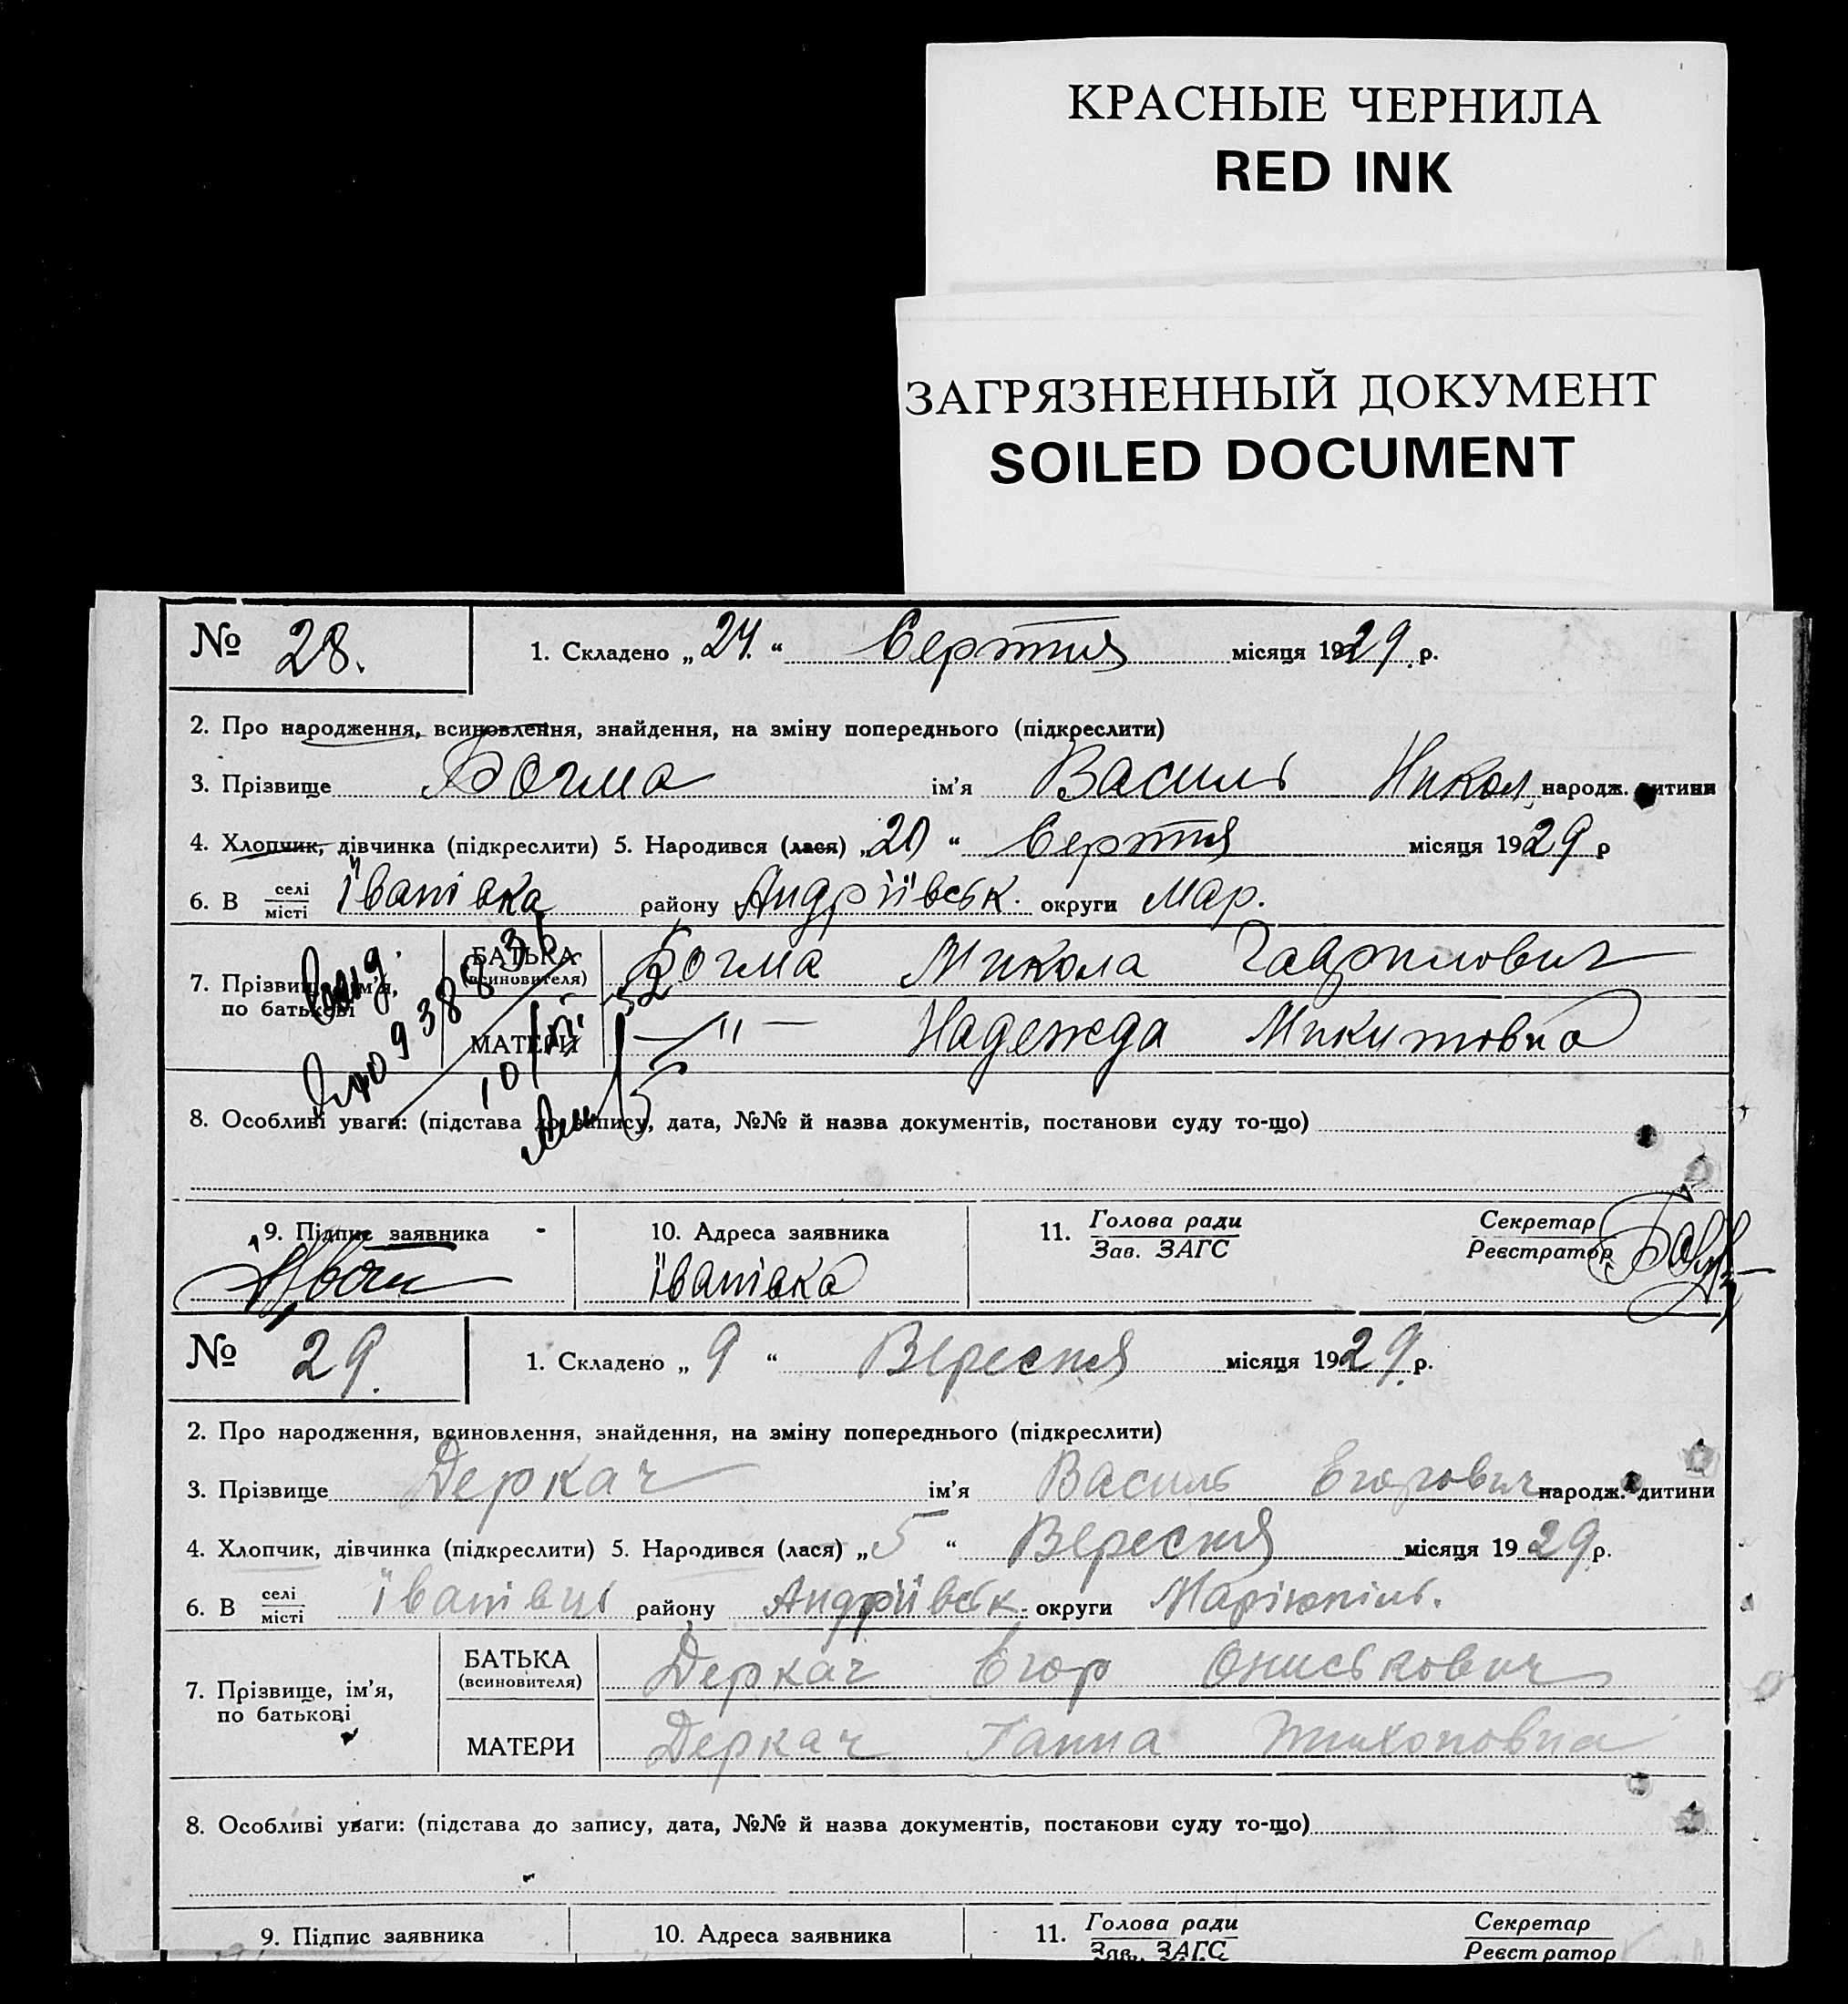 КРАСНЫЕ ЧЕРНИЛА
RED INK
ЗАГРЯЗНЕННЫЙ ДОКУМЕНТ
SOILED DOCUMENT
№ 28. 1. Складено „ 24. “ Серпня місяця 1929 р.
2. Про народження, всиновлення, знайдення, на зміну попереднього (підкреслити)
3. Прізвище Богма ім'я Василь Никол народж. дитини
4. Хлопчик, дівчинка (підкреслити) 5. Народився (лася) „ 20 “ Серпня місяця 1929 р
6. В селі/місті Іванівка району Андріївськ. округи Мар.
7. Прізвище, ім'я, по батькові
БАТЬКА (всиновителя) Богма Микола Гаврилович
МАТЕРИ —"— Надежда Микитовна
8. Особливі уваги: (підстава до запису, дата, №№ й назва документів, постанови суду то-що)
9. Підпис заявника 10. Адреса заявника 11. Голова ради/Зав. ЗАГС Секретар/Реєстратор
Іванівка
№ 29. 1. Складено „ 9 “ Вересня місяця 1929. р.
2. Про народження, всиновлення, знайдення, на зміну попереднього (підкреслити)
3. Прізвище Деркач ім'я Василь Егорович народж. дитини
4. Хлопчик, дівчинка (підкреслити) 5. Народився (лася) „ 5 “ Вересня місяця 1929. р.
6. В селі/місті Іванівці району Андріївськ. округи Маріюпіль.
7. Прізвище, ім'я, по батькові
БАТЬКА (всиновителя) Деркач Егор Ониськович
МАТЕРИ Деркач Ганна Тихоновна
8. Особливі уваги: (підстава до запису, дата, №№ й назва документів, постанови суду то-що)
9. Підпис заявника 10. Адреса заявника 11. Голова ради/Зав. ЗАГС Секретар/Реєстратор